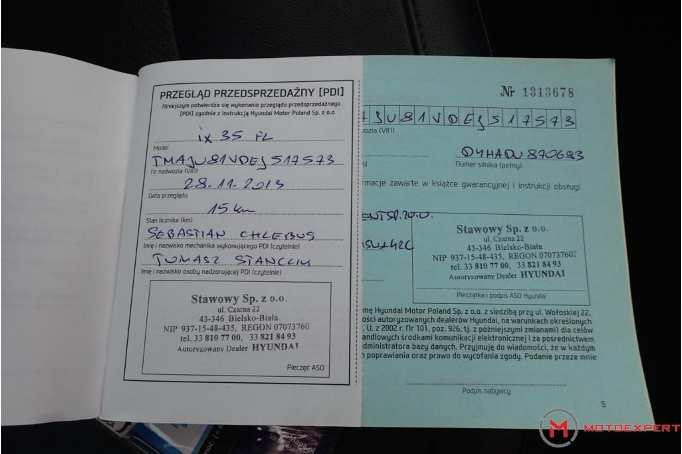 PRZEGLĄD PRZEDSPRZEDAŻNY [PDI]
Niniejszym potwierdza się wykonanie przeglądu przedsprzedażnego
[PDI] zgodnie z instrukcją Hyundai Motor Poland Sp. z o.o.
ix 35 FL
Model
TMAJU81VDEJ517573
Nr nadwozia (VIN)
28.11.2013
Data przeglądu
15 km
Stan licznika (km)
SEBASTIAN CHLEBUS
Imię i nazwisko mechanika wykonującego PDI (czytelnie)
TOMASZ
Imię i nazwisko osoby nadzorującej PDI (czytelnie)
Stawowy Sp. z o.o.
ul. Czarna 22
43-346 Bielsko-Biała
NIP 937-15-48-435, REGON 07073760
tel. 33 810 77 00, 33 821 84 93
Autoryzowany Dealer HYUNDAI
Pieczęć ASO
Nr 1313678
JU81VDEJ517573
(VIN)
D4HADU870683
Numer silnika (pełny)
macje zawarte w książce gwarancyjnej i instrukcji obsługi
Stawowy Sp. z o.o.
ul. Czarna 22
43-346 Bielsko-Biała
NIP 937-15-48-435, REGON 07073760
tel. 33 810 77 00, 33 821 84 93
Autoryzowany Dealer HYUNDAI
Pieczątka i podpis ASO Hyundai
mę Hyundai Motor Poland Sp. z o.o. z siedzibą przy ul. Wołoskiej 22,
ości autoryzowanych dealerów Hyundai, na warunkach określonych
. U. z 2002 r. Nr 101, poz. 926, tj. z późniejszymi zmianami) dla celów
andlowych środkami komunikacji elektronicznej i za pośrednictwem
dministratora bazy danych. Przyjmuję do wiadomości, że w każdym
poprawiania oraz prawo do wycofania zgody. Podanie przeze mnie
Podpis nabywcy
5
MOTOEXPERT